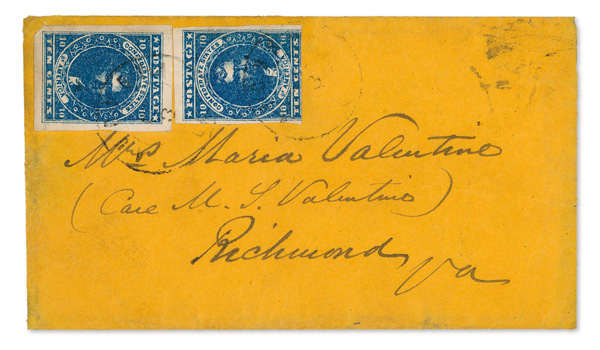 10 POSTAGE 10
CONFEDERATE STATES
TEN CENTS
10 POSTAGE 10
CONFEDERATE STATES
TEN CENTS
Miss Maria Valentine
(Care M. S. Valentine)
Richmond
Va